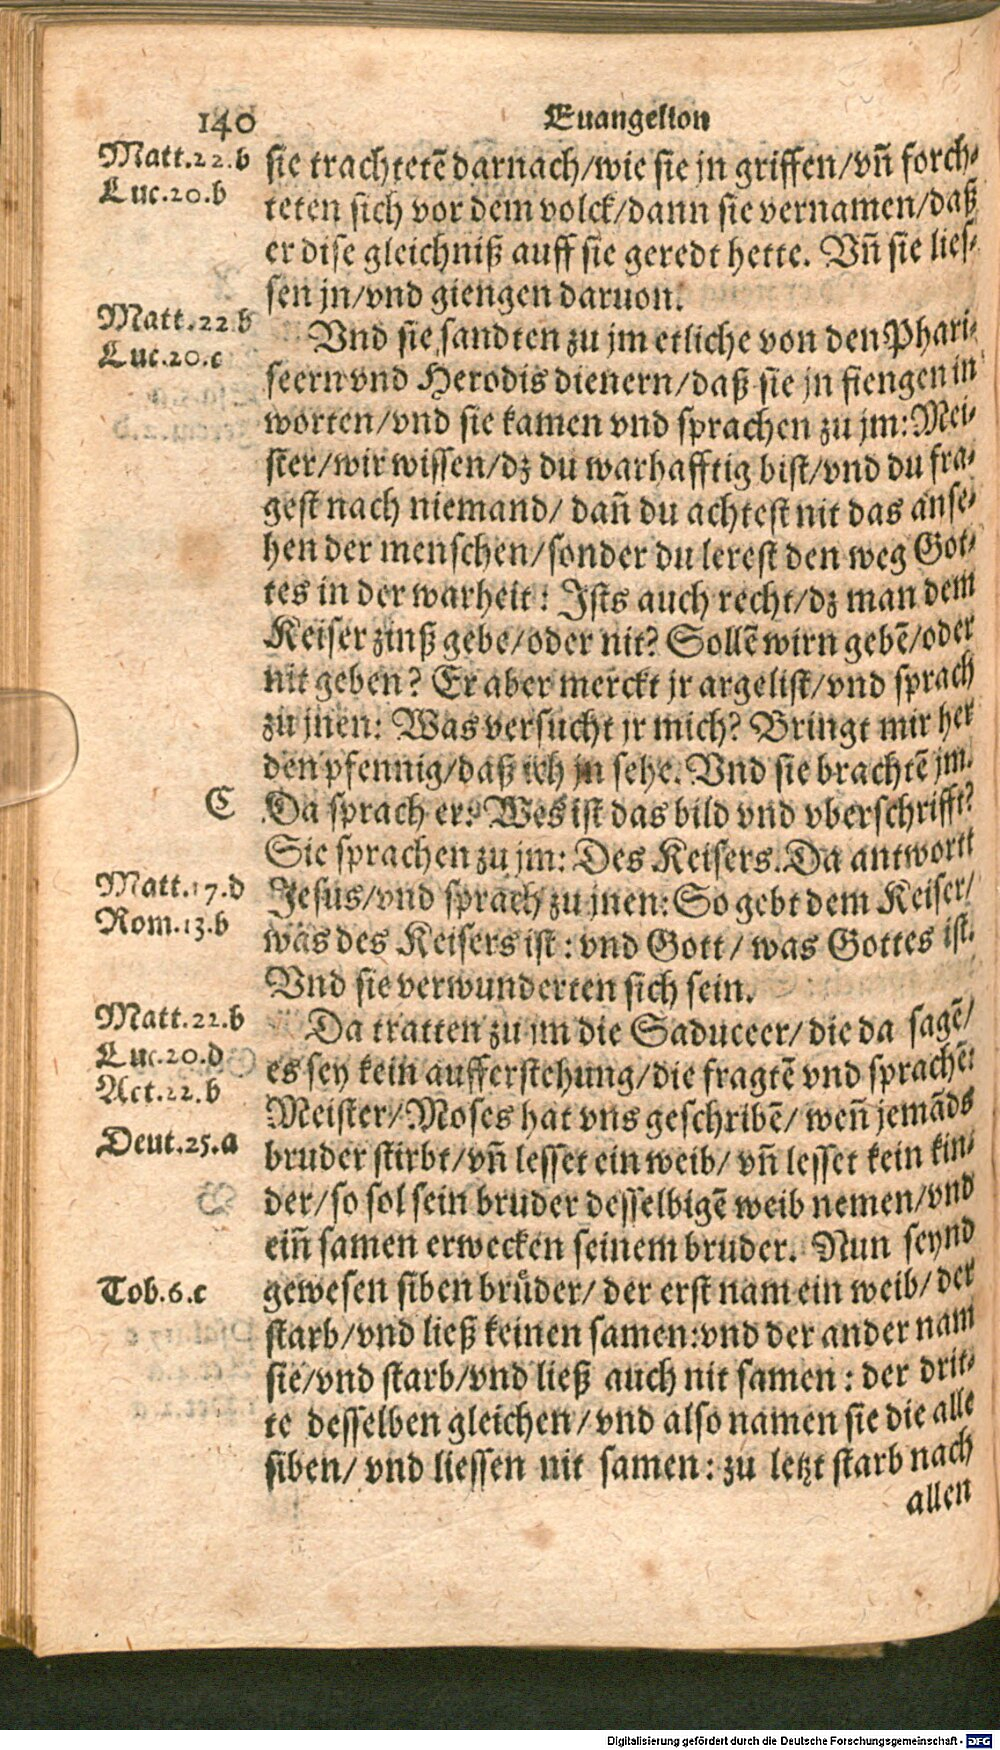 140 Euangelion
Matt.22.b
Luc.20.b
sie trachtetē darnach/wie sie jn griffen/vñ forch-
teten sich vor dem volck/dann sie vernamen/daß
er dise gleichniß auff sie geredt hette. Vñ sie lies-
sen jn/vnd giengen daruon.
Matt.22 b
Luc.20.c
Vnd sie sandten zu jm etliche von den Phari-
seern vnd Herodis dienern/daß sie jn fiengen in
worten/vnd sie kamen vnd sprachen zu jm: Mei-
ster/wir wissen/dz du warhafftig bist/vnd du fra-
gest nach niemand/ dañ du achtest nit das anse-
hen der menschen/sonder du lerest den weg Got-
tes in der warheit: Ists auch recht/dz man dem
Keiser zinß gebe/oder nit? Sollē wirn gebē/oder
nit geben? Er aber merckt jr argelist/vnd sprach
zu jnen: Was versucht jr mich? Bringt mir her
den pfennig/daß ich jn sehe. Vnd sie brachtē jm.
C
Da sprach er: Wes ist das bild vnd vberschrifft?
Sie sprachen zu jm: Des Keisers. Da antwortt
Matt.17.d
Rom.13.b
Jesus/vnd sprach zu jnen: So gebt dem Keiser/
was des Keisers ist: vnd Gott/ was Gottes ist.
Vnd sie verwunderten sich sein.
Matt.22.b
Luc.20.d
Act.22.b
Deut.25.a
Da tratten zu jm die Saduceer/ die da sagē/
es sey kein aufferstehung/die fragtē vnd sprachē:
Meister/Moses hat vns geschribē/ weñ jemāds
bruder stirbt/vñ lesset ein weib/ vñ lesset kein kin-
der/so sol sein bruder desselbigē weib nemen/vnd
eiñ samen erwecken seinem bruder. Nun seynd
Tob.6.c
gewesen siben brůder/ der erst nam ein weib/ der
starb/vnd ließ keinen samen: vnd der ander nam
sie/vnd starb/vnd ließ auch nit samen: der drit-
te desselben gleichen/vnd also namen sie die alle
siben/ vnd liessen nit samen: zu letzt starb nach
allen
Digitalisierung gefördert durch die Deutsche Forschungsgemeinschaft - DFG